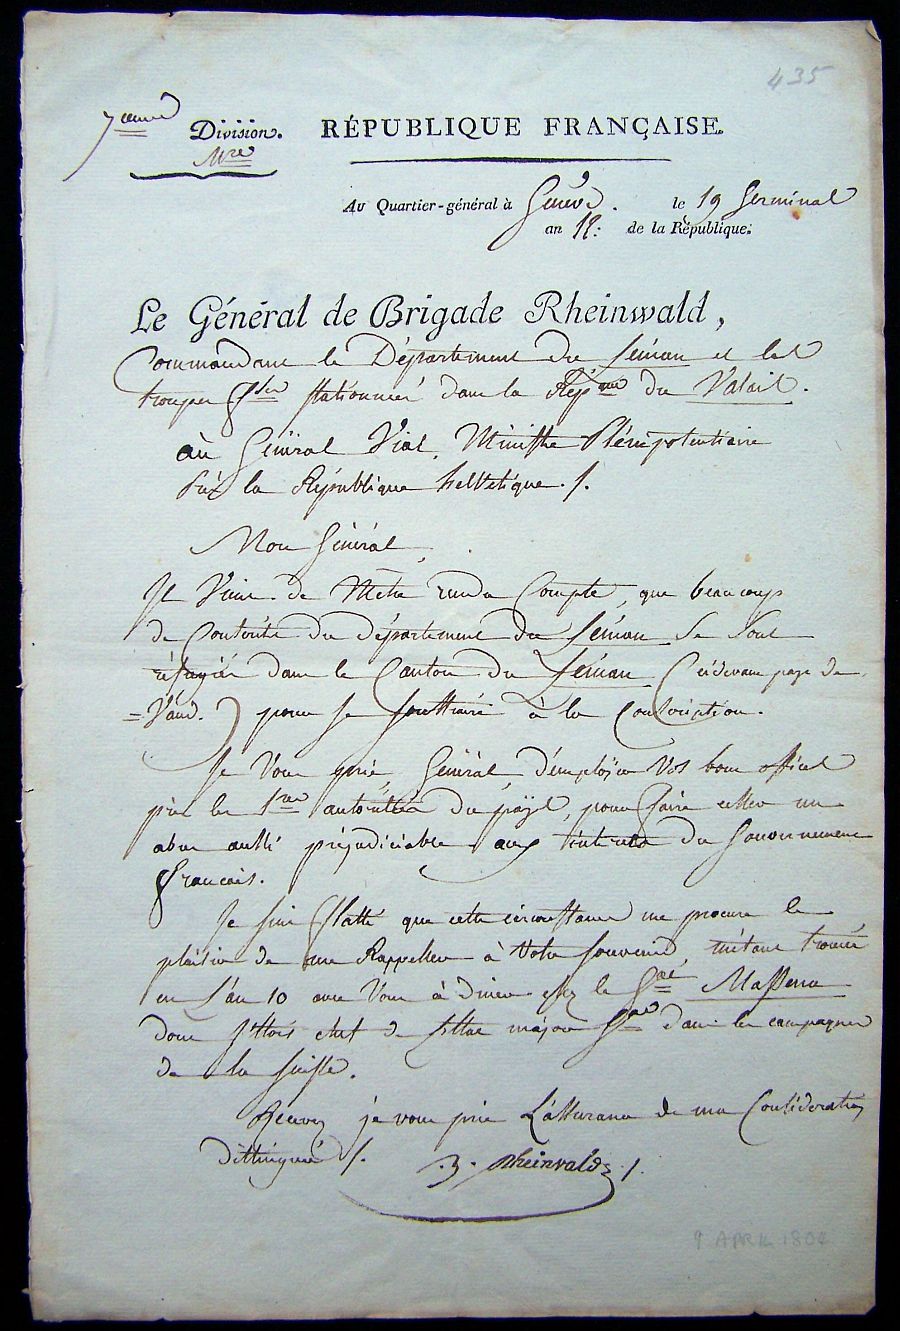 435
7eme Division. RÉPUBLIQUE FRANÇAISE.
Mre
Au Quartier-général à Genève. le 19 Germinal
an 12: de la République.
Le Général de Brigade Rheinwald,
Commandant le Département du Léman et les
troupes fses stationnées dans la Répque du Valais.
au Général Vial, Ministre Plénipotentiaire
Près la République helvetique ./.
Mon Général,
Je Viens de Mêtre rendu Compte, que beaucoup
de Conscrits du département du Léman Se Sont
réfugiés dans le Canton du Léman (cidevant pays de
=Vaud.) pour se soustraire à la Conscription.
Je Vous prie, Général d'emploïer Vos bons offices
près les 1res autorités du païs, pour faire cesser un
abus aussi préjudiciable aux intérets du Gouvernement
francais.
Je suis flatté que cette circonstance me procure le
plaisir de me Rappeller à Votre souvenir, m'étant trouvé
en L'an 10 avec Vous à diner chez le Gal Massena
dont j'étois chef de l'Etat major gal dans les campagnes
de la suisse.
Recevez je vous prie L'assurance de ma Considération
distinguée ./. J. Rheinwald ./.
9 APRIL 1804